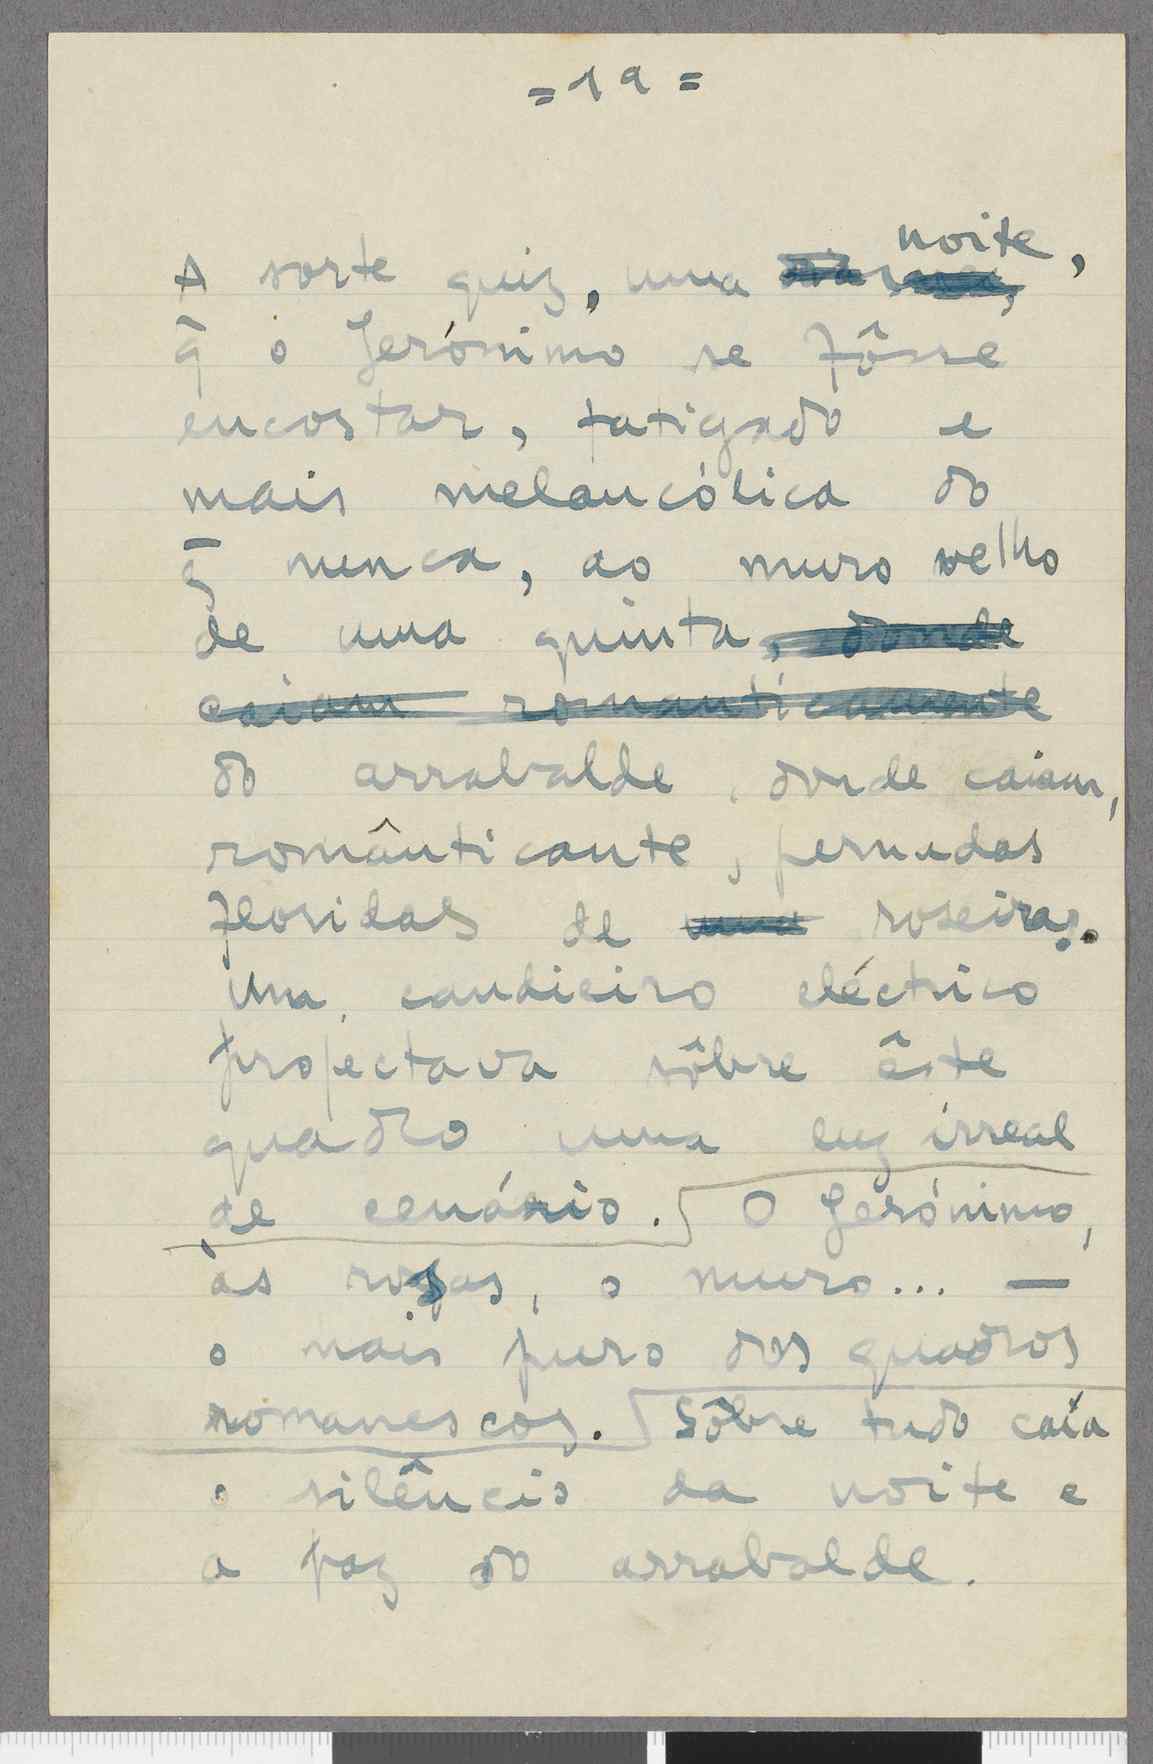 = 19 =
noite,
A sorte quiz, uma
q̄ o Jerónimo se fôsse
encostar, fatigado e
mais melancólica do
q̄ nunca, ao muro velho
de uma quinta, donde
caiam romanticamente
do arrabalde, donde caiam,
românticante, pernadas
floridas de uma roseiras.
Um candieiro eléctrico
projectava sôbre êste
quadro uma luz irreal
de cenário. O Jerónimo,
às rosas, o muro... —
o mais puro dos quadros
romanescos. Sôbre tudo caía
o silêncio da noite e
a paz do arrabalde.